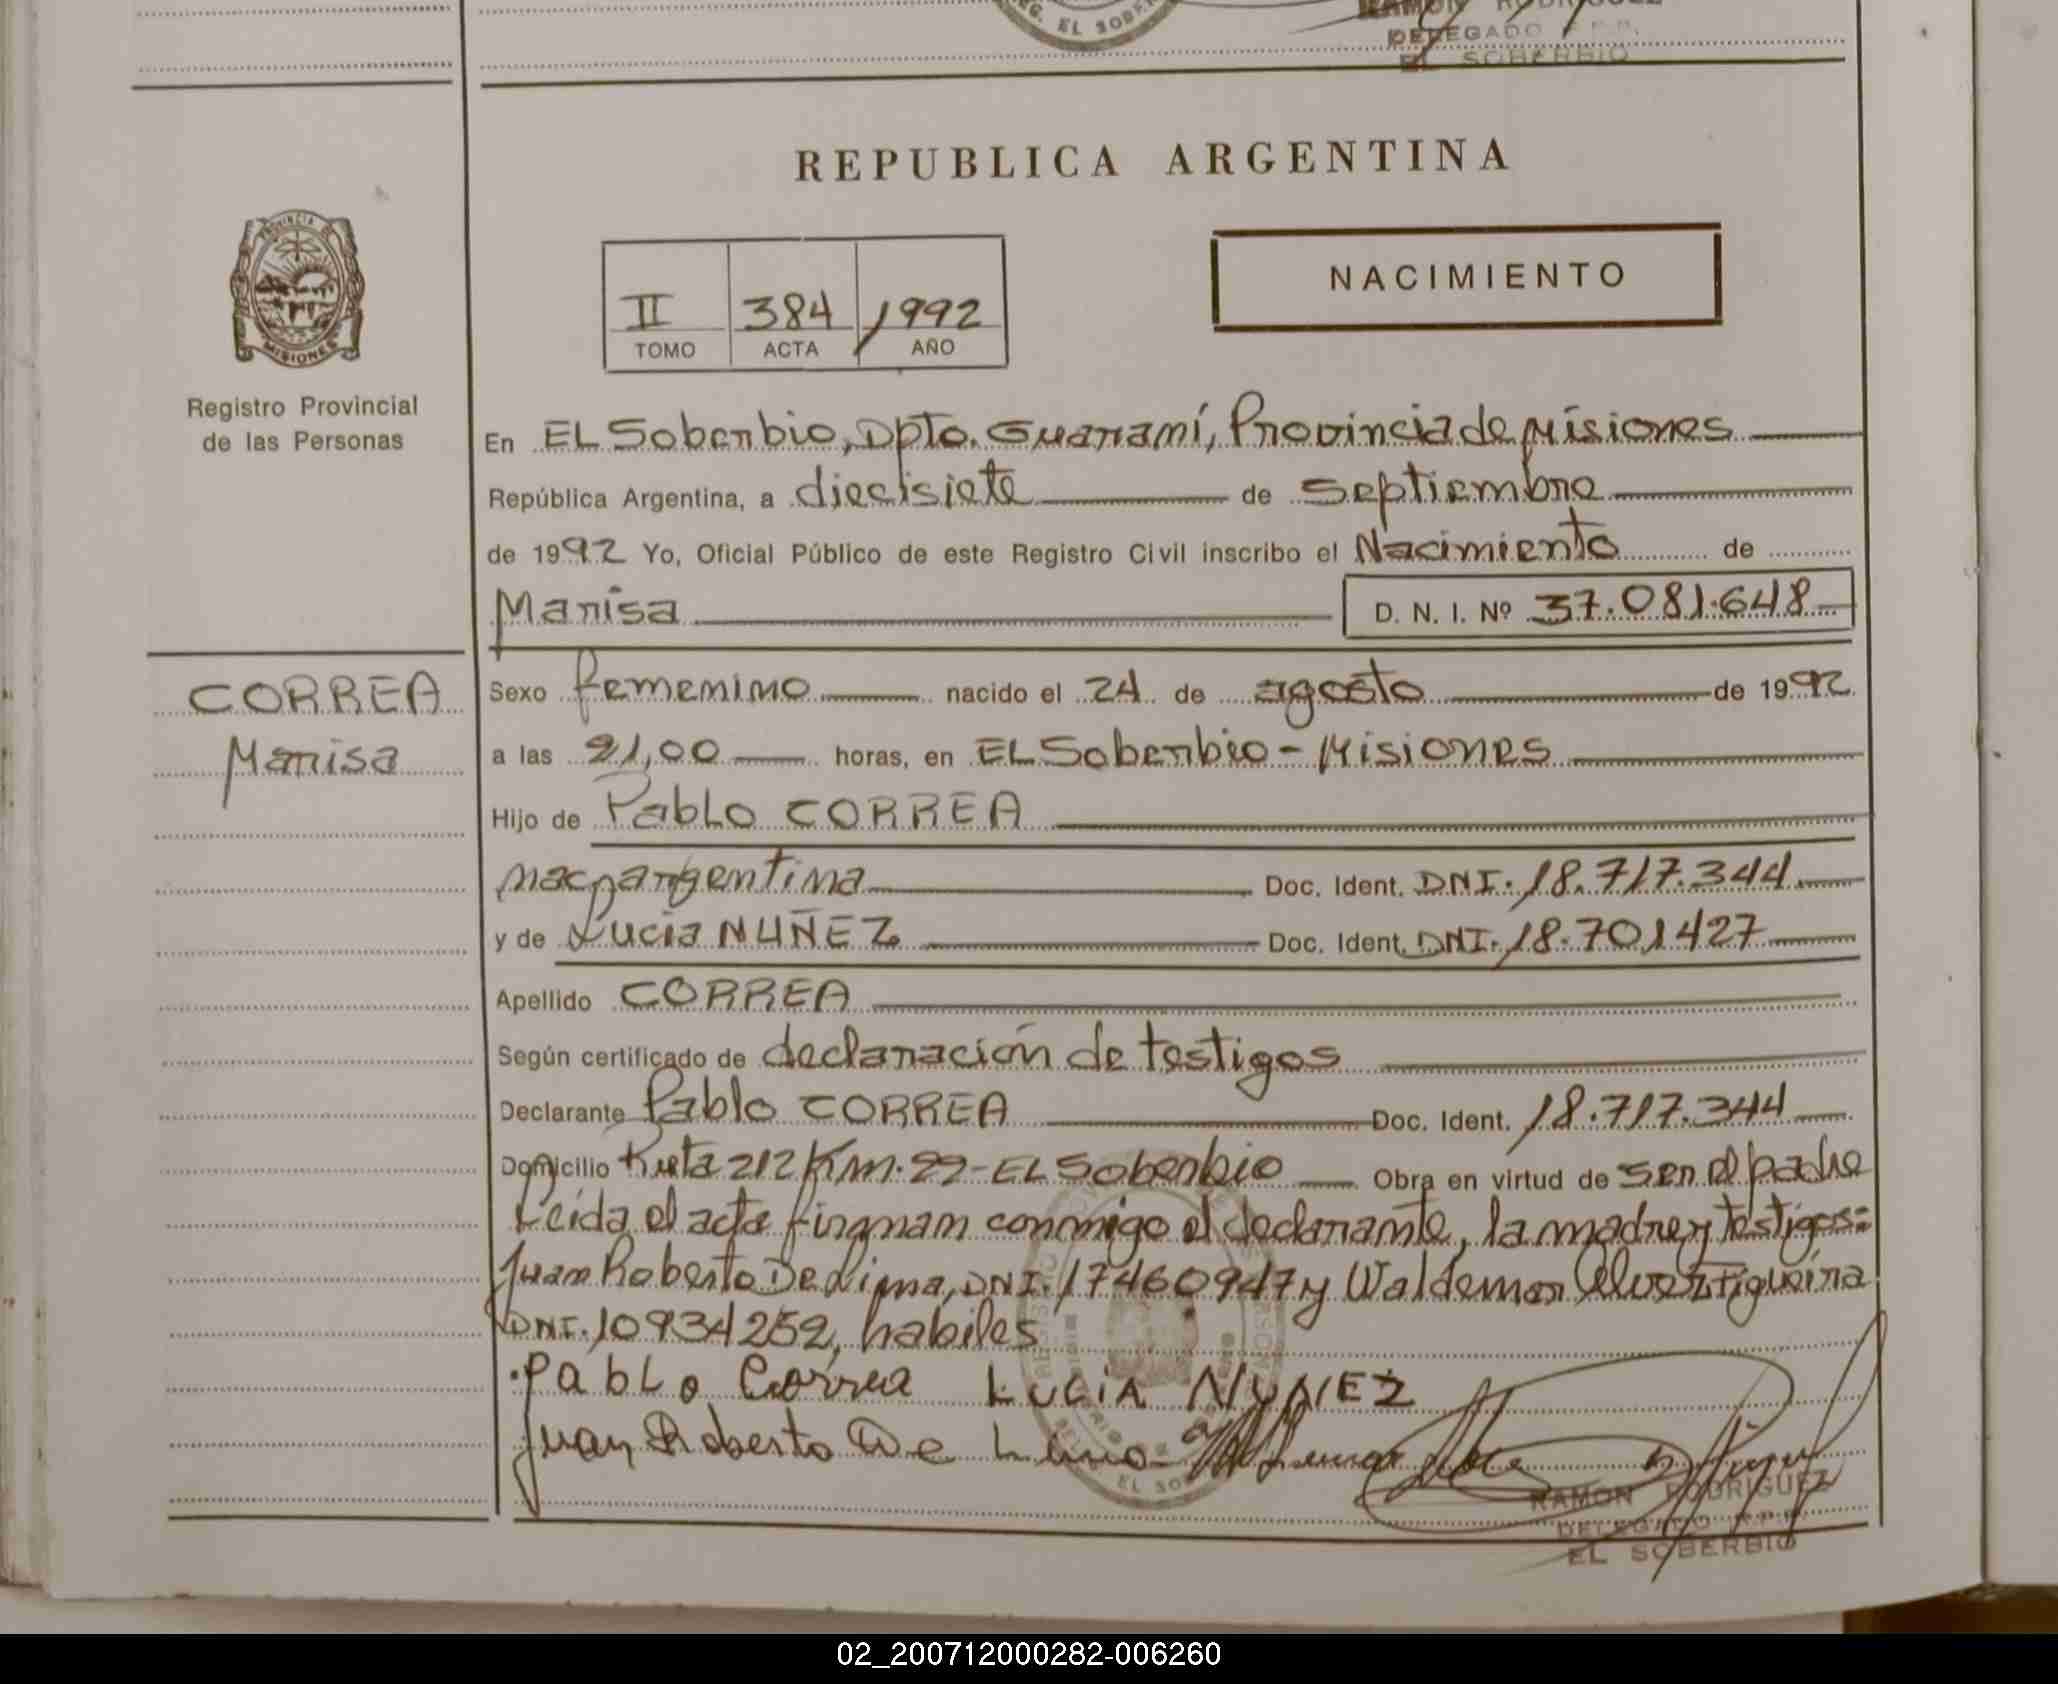 REG. EL SOBER
RAMON RODRIGUEZ
DELEGADO R.P.P.
EL SOBERBIO
REPUBLICA ARGENTINA
PROVINCIA DE
MISIONES
Registro Provincial
de las Personas
II 384 1992
TOMO ACTA AÑO
NACIMIENTO
En EL Soberbio, Dpto. Guaraní, Provincia de Misiones
República Argentina, a diecisiete de Septiembre
de 1992 Yo, Oficial Público de este Registro Civil inscribo el Nacimiento de
Marisa D. N. I. Nº 37.081.648
CORREA
Marisa
Sexo femenino nacido el 24 de agosto de 1992
a las 21,00 horas, en EL Soberbio - Misiones
Hijo de Pablo CORREA
nac. argentina Doc. Ident. DNI. 18.717.344
y de Lucia NUÑEZ Doc. Ident. DNI. 18.701427
Apellido CORREA
Según certificado de declaración de testigos
Declarante Pablo CORREA Doc. Ident. 18.717.344
Domicilio Ruta 212 Km. 22 - EL Soberbio Obra en virtud de ser el padre
Leida el acta firman conmigo el declarante, la madre y testigos=
Juan Roberto De Lima, DNI. 17460947 y Waldemar Figueira
DNI. 10934252, habiles
Pablo Correa LUCIA NUÑEZ
Juan Roberto De Lima
EL SO
RAMON RODRIGUEZ
DELEGADO R.P.P.
EL SOBERBIO
02_200712000282-006260